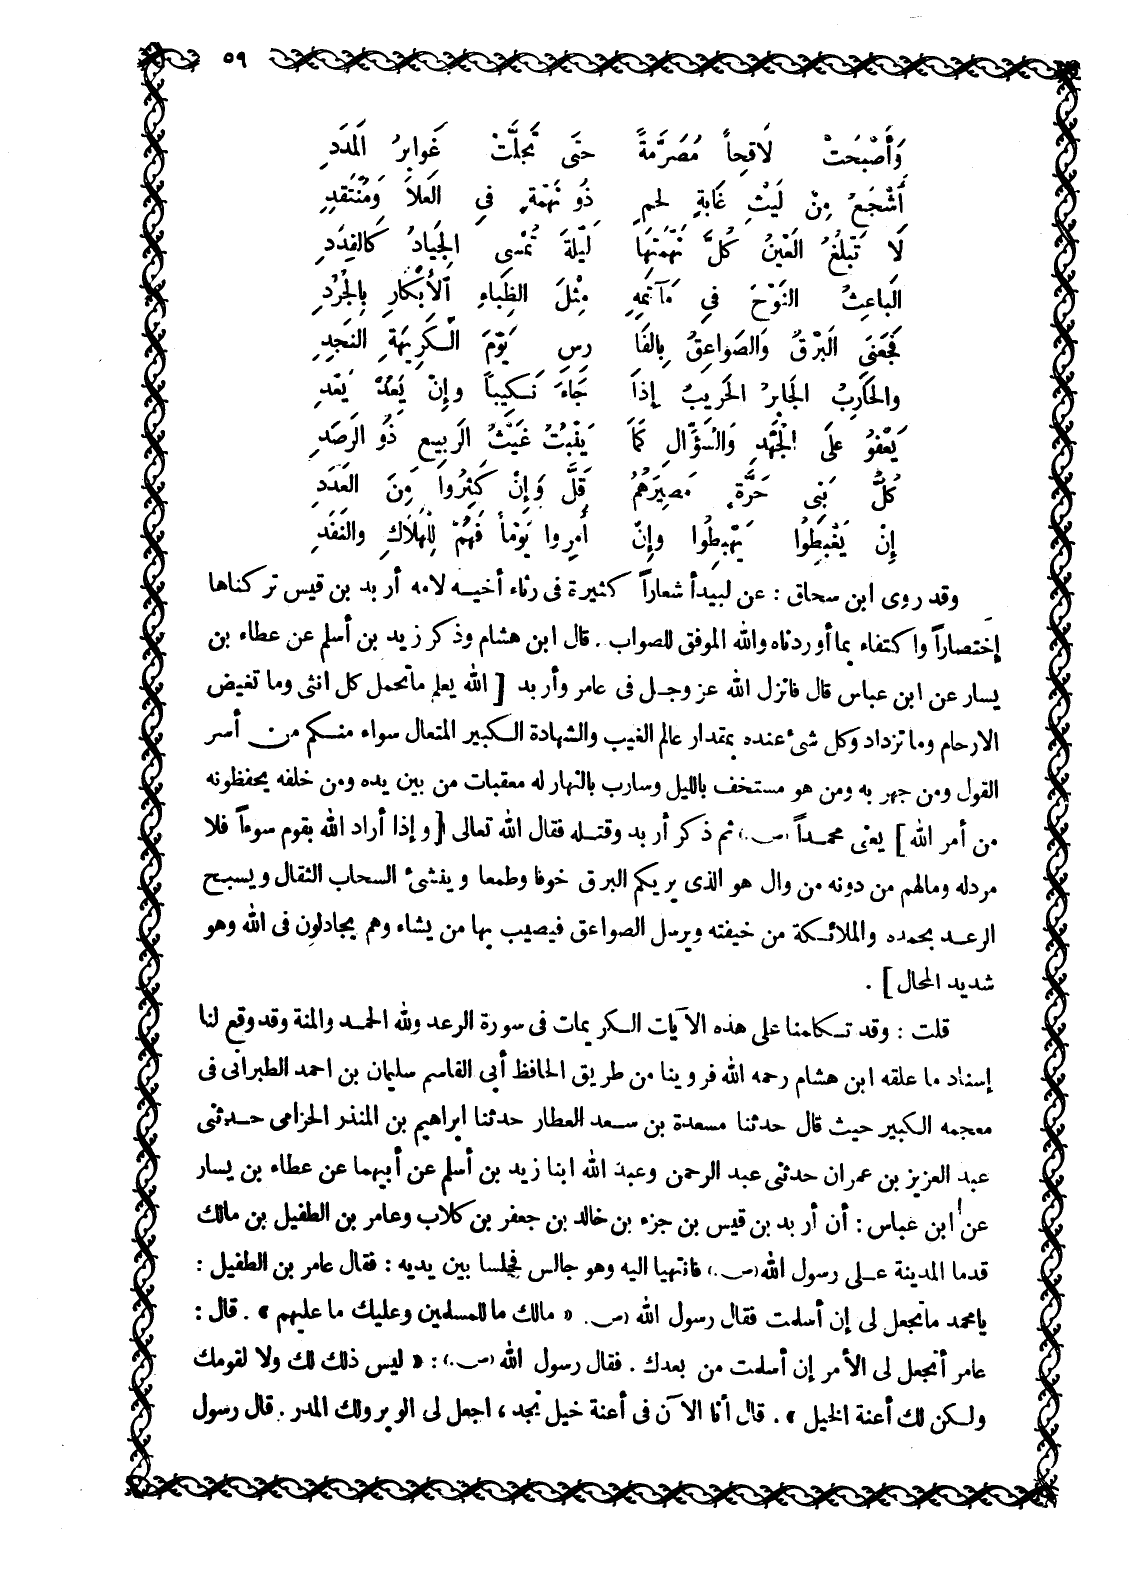 ٥٩
وَأَصْبَحَتْ لَاقِحاً مُصَرَّمَةً حتَى تَجَلَّتْ غَوابِرُ المَدَدِ
أَشْجَعُ مِنْ لَيْثِ غَابَةٍ لحمٍ ذُو نَهْمَةٍ فِي العَلاَ وَمُنْتَقدِ
لَا تَبْلغُ العَيْنُ كُلَّ نَهْمَتِهَا لَيْلَةَ تُمْسى الجِيادُ كَالفِدَدِ
البَاعِثُ النَوْحَ فِي مَآتَمِهِ مِثْلَ الظِبَاءِ الأَبْكَارِ بِالجُرُدِ
فَجَعَنِي البَرْقُ وَالصَواعِقُ بِالفَا رسِ يَوْمَ الْكَرِيَهةِ النَجِدِ
والحَارِبُ الجَابرُ الحَرِيبُ إِذاَ جَاءَ نَكيباً وإِنْ يَعُدْ يَعْدِ
يَعْفوُ علَى الجُهْدِ وَالسُؤَّالِ كَمَا يَنْبُتُ غَيْثُ الرَبِيعِ ذُو الرَصَدِ
كُلُّ بَنِى حَرَّةٍ مَصِيَرهُمُ قَلَّ وَإِنْ كَثِرُوا مِنَ العَدَدِ
إِنْ يَغْبَطُوا يَهْبِطُوا وإِنْ أُمِروا يَوْماً فَهُمْ لِلْهَلَاكِ والنَفَدِ
وقد روى ابن سحاق : عن لبيدأ شعاراً كثيرة فى رثاء أخيه لامه أربد بن قيس تركناها
إختصاراً واكتفاء بما أوردناه والله الموفق للصواب . قال ابن هشام وذكر زيد بن أسلم عن عطاء بن
يسار عن ابن عباس قال فانزل الله عز وجل فى عامر وأربد [ الله يعلم ماتحمل كل انثى وما تغيض
الارحام وما تزداد وكل شىء عنده بمقدار عالم الغيب والشهادة الكبير المتعال سواء منكم من أسر
القول ومن جهر به ومن هو مستخف بالليل وسارب بالنهار له معقبات من بين يده ومن خلفه يحفظونه
من أمر الله ] يعنى محمداً (ص.) ثم ذكر أربد وقتله فقال الله تعالى [ وإذا أراد الله بقوم سوءاً فلا
مردله ومالهم من دونه من وال هو الذى يريكم البرق خوفا وطمعا وينشىء السحاب الثقال ويسبح
الرعد بحمده والملائكة من خيفته ويرسل الصواعق فيصيب بها من يشاء وهم يجادلون فى الله وهو
شديد المحال ] .
قلت : وقد تكلمنا على هذه الآيات الكريمات فى سورة الرعد ولله الحمد والمنة وقد وقع لنا
إسناد ما علقه ابن هشام رحمه الله فروينا من طريق الحافظ أبى القاسم سليمان بن احمد الطبرانى فى
معجمه الكبير حيث قال حدثنا مسعدة بن سعد العطار حدثنا ابراهيم بن المنذر الحزامى حدثنى
عبد العزيز بن عمران حدثنى عبد الرحمن وعبد الله ابنا زيد بن أسلم عن أبيهما عن عطاء بن يسار
عن ابن عباس : أن أربد بن قيس بن جزء بن خالد بن جعفر بن كلاب وعامر بن الطفيل بن مالك
قدما المدينة على رسول الله (ص.) فانتهيا اليه وهو جالس فجلسا بين يديه : فقال عامر بن الطفيل :
يامحمد ماتجعل لى إن أسلمت فقال رسول الله (ص. « مالك ما للمسلمين وعليك ما عليهم » . قال :
عامر أتجعل لى الأمر إن أسلمت من بعدك . فقال رسول الله (ص.) : « ليس ذلك لك ولا لقومك
ولكن لك أعنة الخيل » . قال أنا الآن فى أعنة خيل نجد ، اجعل لى الوبر ولك المدر . قال رسول